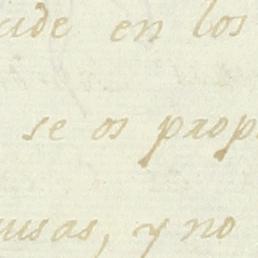 ide en los
se os prop
usas, y no